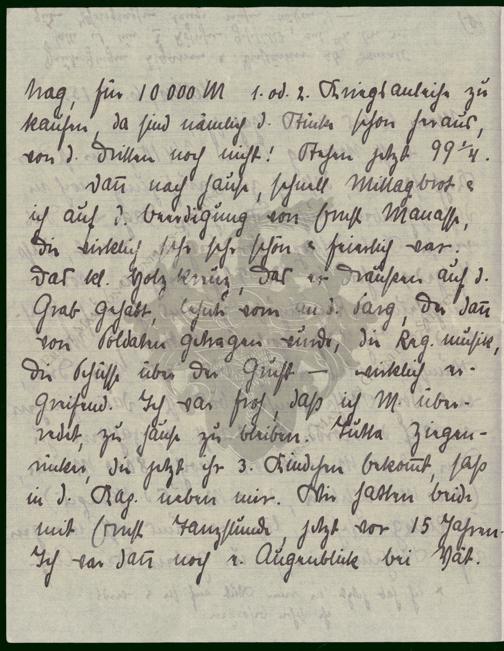 trag, für 10 000 M 1. od. 2. Kriegsanleihe zu
kaufen, da sind nämlich d. Stücke schon heraus,
von d. dritten noch nicht! Stehen jetzt 99 1/4.
Dann nach Hause, schnell Mittagbrot &
ich auf d. Beerdigung von Ernst Manasse,
die wirklich sehr sehr schön & feierlich war.
Das kl. Holzkreuz, das er draußen auf d.
Grab gehabt, lehnte vorn an d. Sarg, der dann
von Soldaten getragen wurde, die Reg. musik,
die Schüsse über der Gruft — wirklich er-
greifend. Ich war froh, daß ich M über-
redet, zu Hause zu bleiben. Jutta Ziegen-
, die jetzt ihr 3. Kindchen bekomt, saß
in d. Kap. neben mir. Wir hatten beide
mit Ernst Tanzstunde, jetzt vor 15 Jahren.
Ich war dann noch e. Augenblick bei Vät.